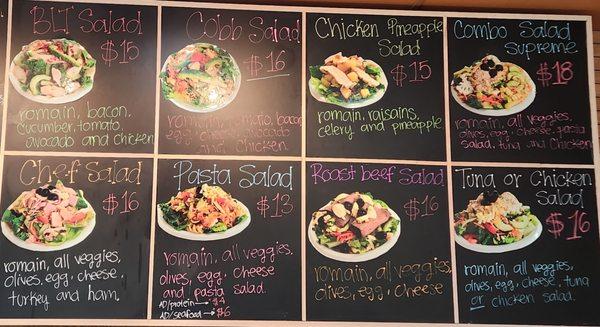 BLT Salad
$15
romain, bacon,
cucumber, tomato,
avocado and chicken
Cobb Salad
$16
romain, tomato, bacon
egg, cheese, avocado
and chicken.
Chicken Pineapple
Salad
$15
romain, raisains,
celery and pineapple.
Combo Salad
Supreme
$18
romain, all veggies,
olives, egg, cheese, pasta
salad, tuna and chicken
Chef Salad
$16
romain, all veggies,
olives, egg, cheese,
turkey and ham.
Pasta Salad
$13
romain, all veggies,
olives, egg, cheese
and pasta salad.
AD/protein → $4
AD/seafood → $6
Roast beef Salad
$16
romain, all veggies,
olives, egg, cheese
Tuna or Chicken
Salad
$16
romain, all veggies,
olives, egg, cheese, tuna
or chicken salad.